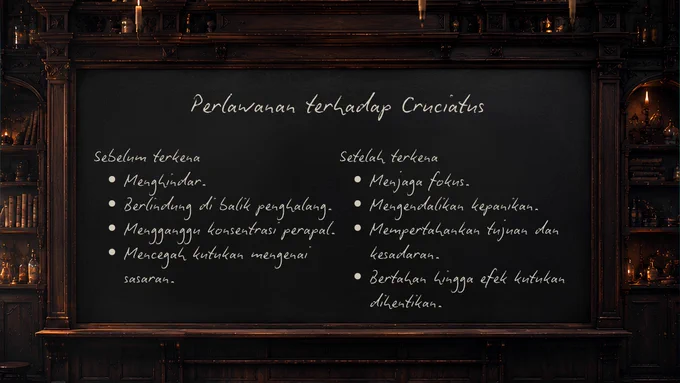 Perlawanan terhadap Cruciatus
Sebelum terkena
• Menghindar.
• Berlindung di balik penghalang.
• Mengganggu konsentrasi perapal.
• Mencegah kutukan mengenai
sasaran.
Setelah terkena
• Menjaga fokus.
• Mengendalikan kepanikan.
• Mempertahankan tujuan dan
kesadaran.
• Bertahan hingga efek kutukan
dihentikan.